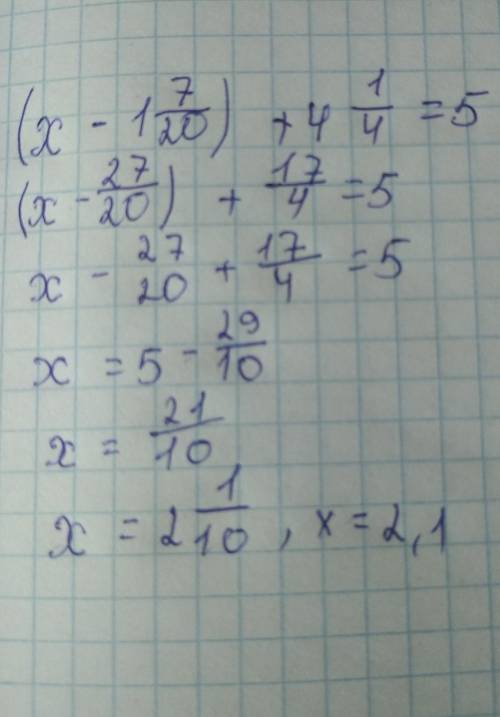 (x - 1 7/20) + 4 1/4 = 5
(x - 27/20) + 17/4 = 5
x - 27/20 + 17/4 = 5
x = 5 - 29/10
x = 21/10
x = 2 1/10, x = 2,1